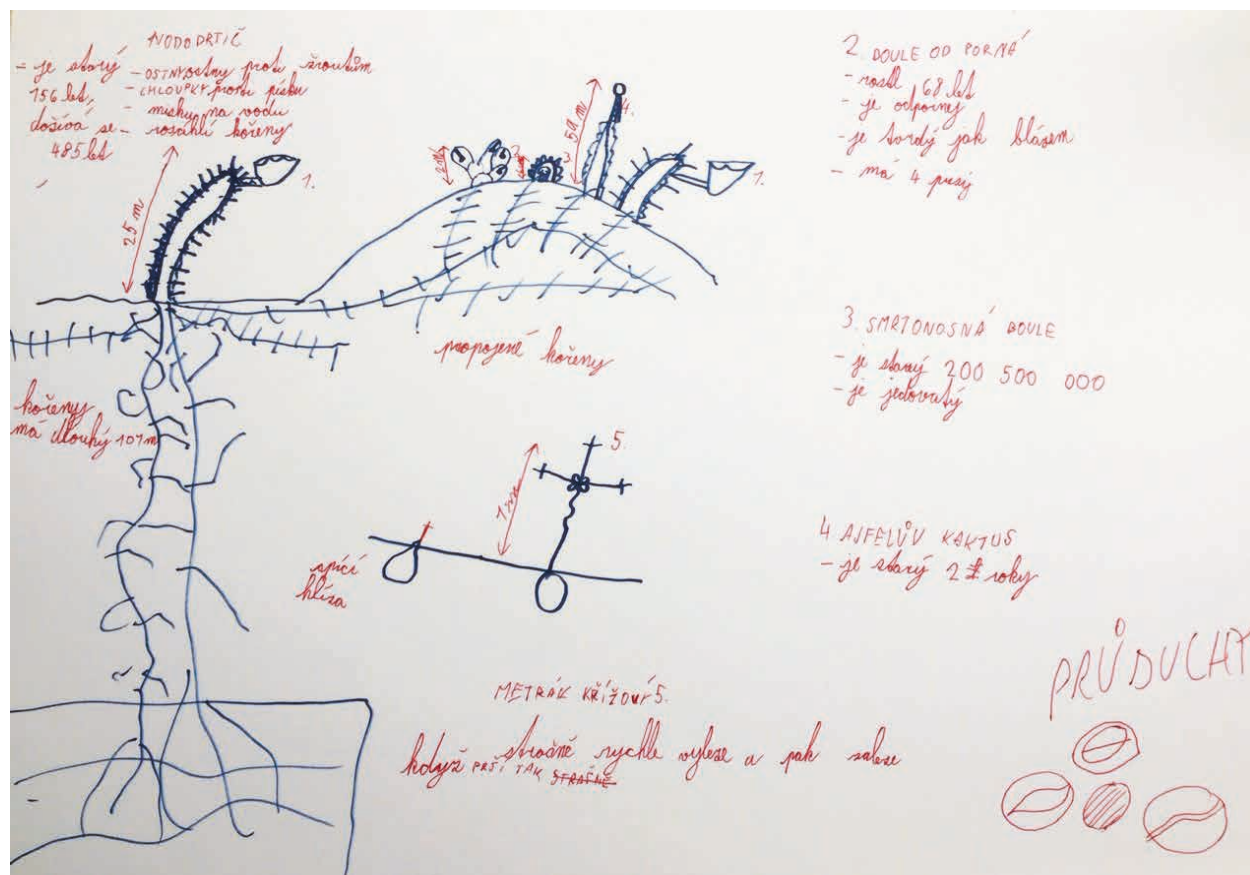 VODODRTIČ
- je starý
156 let,
dožívá se
485 let
- OSTNY ostny proti žroutům
- CHLOUPKY proti písku
- misky na vodu
- rosáhlí kořeny
25 m
1.
2 m
3
50 m
4.
1.
propojené kořeny
kořeny
má dlouhý 107 m
2. BOULE OD PORNÁ
- rostl 68 let
- je odpornej
- je tvrdý jak blázem
- má 4 pusy
3. SMRTONOSNÁ BOULE
- je starý 200 500 000
- je jedovatý
4 AJFELŮV KAKTUS
- je starý 2 roky
1 m
5.
spící
hlíza
METRÁK KŘÍŽOVÝ 5.
když PRŠÍ TAK STRAŠNĚ strašně rychle vyleze a pak zaleze
PRŮDUCHY